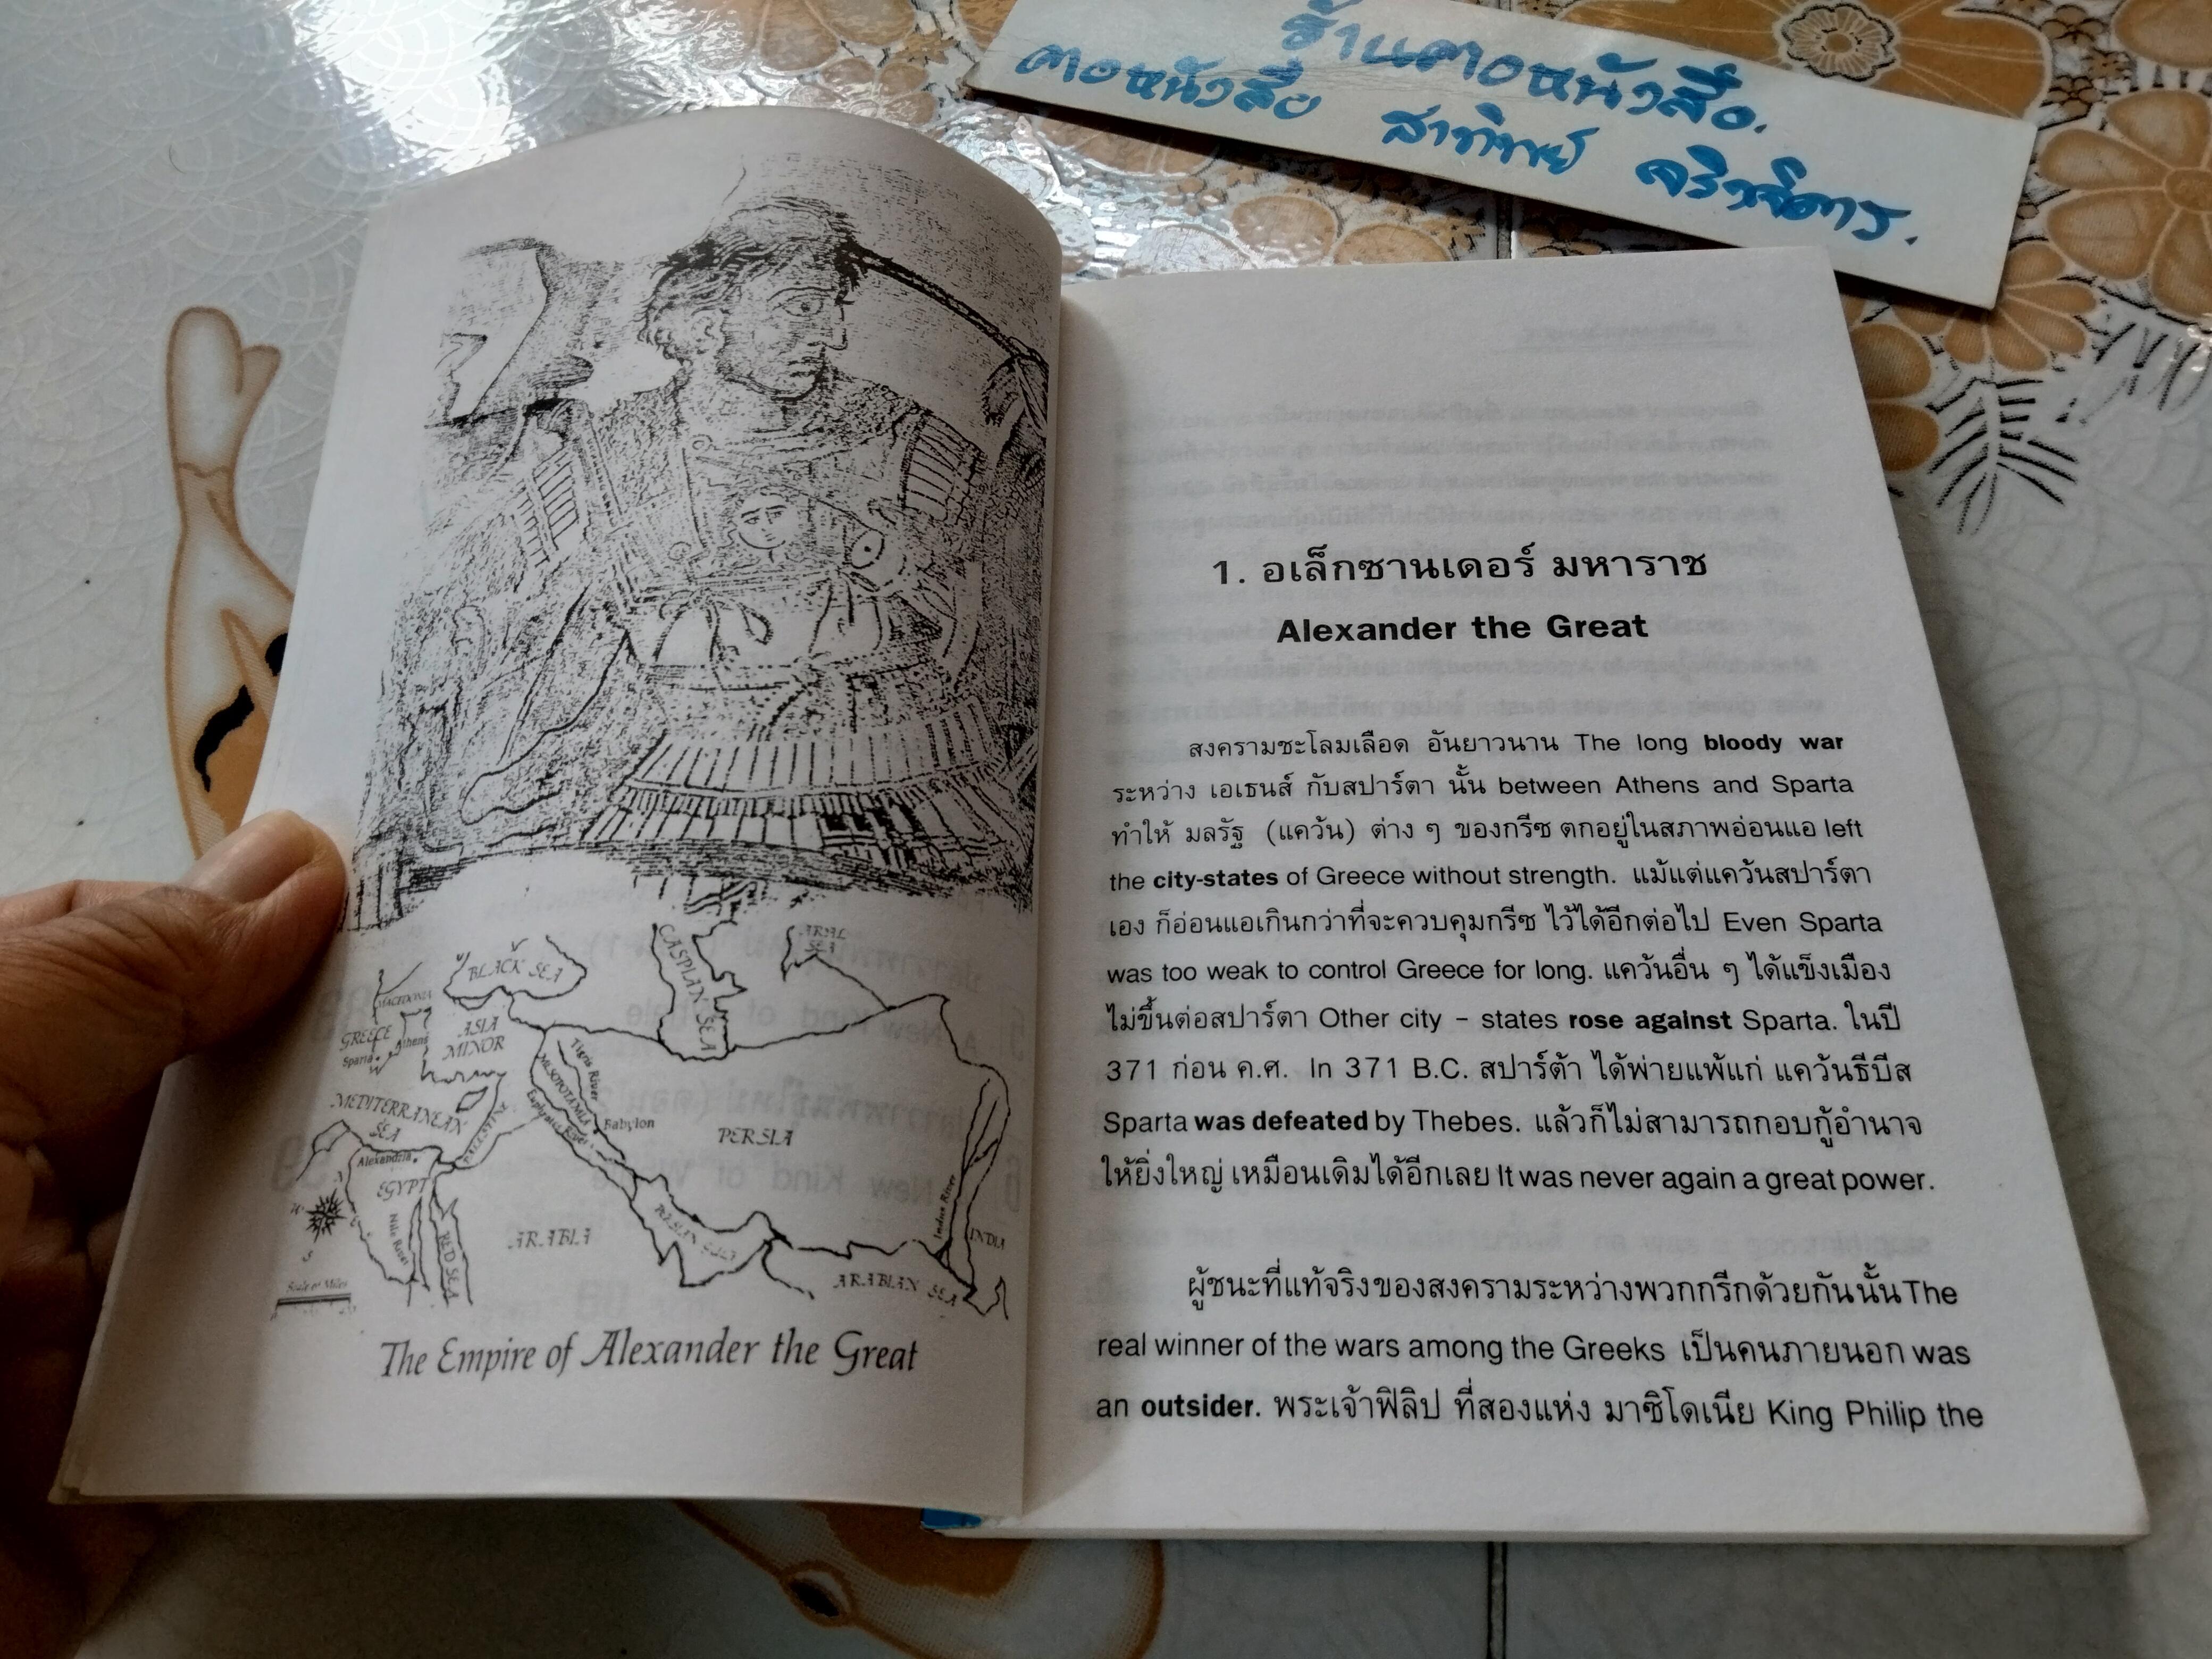 ร้านคอหนังสือ.
คอหนังสือ สาทิทย์ จริงจิตร.
BLACK SEA
CASPIAN SEA
ARAL SEA
MACEDONIA
GREECE
Athens
Sparta
ASIA MINOR
Tigris River
MESOPOTAMIA
Euphrates River
MEDITERRANEAN SEA
PALESTINE
Babylon
PERSIA
Alexandria
EGYPT
Nile River
RED SEA
ARABIA
PERSIAN GULF
Indus River
INDIA
ARABIAN SEA
Scale of Miles
The Empire of Alexander the Great
1. อเล็กซานเดอร์ มหาราช
Alexander the Great
สงครามชะโลมเลือด อันยาวนาน The long bloody war
ระหว่าง เอเธนส์ กับสปาร์ตา นั้น between Athens and Sparta
ทำให้ มลรัฐ (แคว้น) ต่าง ๆ ของกรีซ ตกอยู่ในสภาพอ่อนแอ left
the city-states of Greece without strength. แม้แต่แคว้นสปาร์ตา
เอง ก็อ่อนแอเกินกว่าที่จะควบคุมกรีซ ไว้ได้อีกต่อไป Even Sparta
was too weak to control Greece for long. แคว้นอื่น ๆ ได้แข็งเมือง
ไม่ขึ้นต่อสปาร์ตา Other city – states rose against Sparta. ในปี
371 ก่อน ค.ศ. In 371 B.C. สปาร์ต้า ได้พ่ายแพ้แก่ แคว้นธีบีส
Sparta was defeated by Thebes. แล้วก็ไม่สามารถกอบกู้อำนาจ
ให้ยิ่งใหญ่ เหมือนเดิมได้อีกเลย It was never again a great power.
ผู้ชนะที่แท้จริงของสงครามระหว่างพวกกรีกด้วยกันนั้น The
real winner of the wars among the Greeks เป็นคนภายนอก was
an outsider. พระเจ้าฟิลิป ที่สองแห่ง มาซิโดเนีย King Philip the